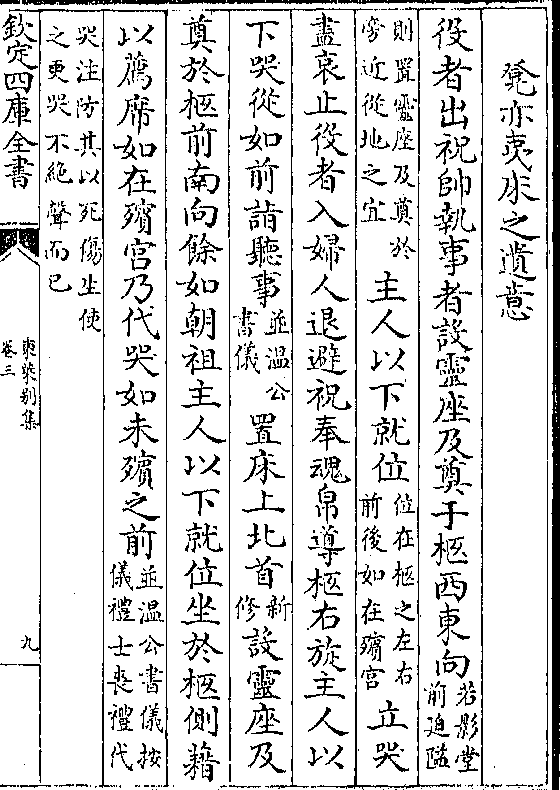 凳亦夷牀之遺意
役者出祝帥執事者設靈座及奠于柩西東向若影堂前迫隘
則置靈座及奠於旁近從地之宜主人以下就位位在柩之左右前後如在殯宮立哭
盡哀止役者入婦人退避祝奉魂帛導柩右旋主人以
下哭從如前詣聽事並温公書儀置牀上北首新修設靈座及
奠於柩前南向餘如朝祖主人以下就位坐於柩側藉
以薦席如在殯宮乃代哭如未殯之前並温公書儀按儀禮士喪禮代
哭注防其以死傷生使之更哭不絶聲而已
欽定四庫全書
東𤅬别集
卷三
九